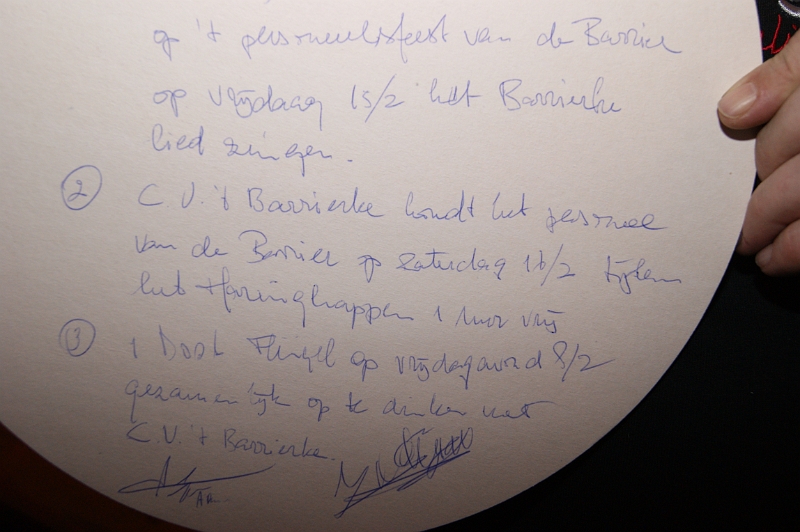 op 't personeelsfeest van de Barrier
op vrijdaag 15/2 het Barrierke
lied zingen.
2 C.V. 't Barrierke houdt het personeel
van de Barrier op zaturdag 16/2 tijdens
het Haringhappen 1 uur vrij
3 1 Doos Flügel op vrijdagavond 8/2
gezamenlijk op te drinken met
C.V. 't Barrierke.